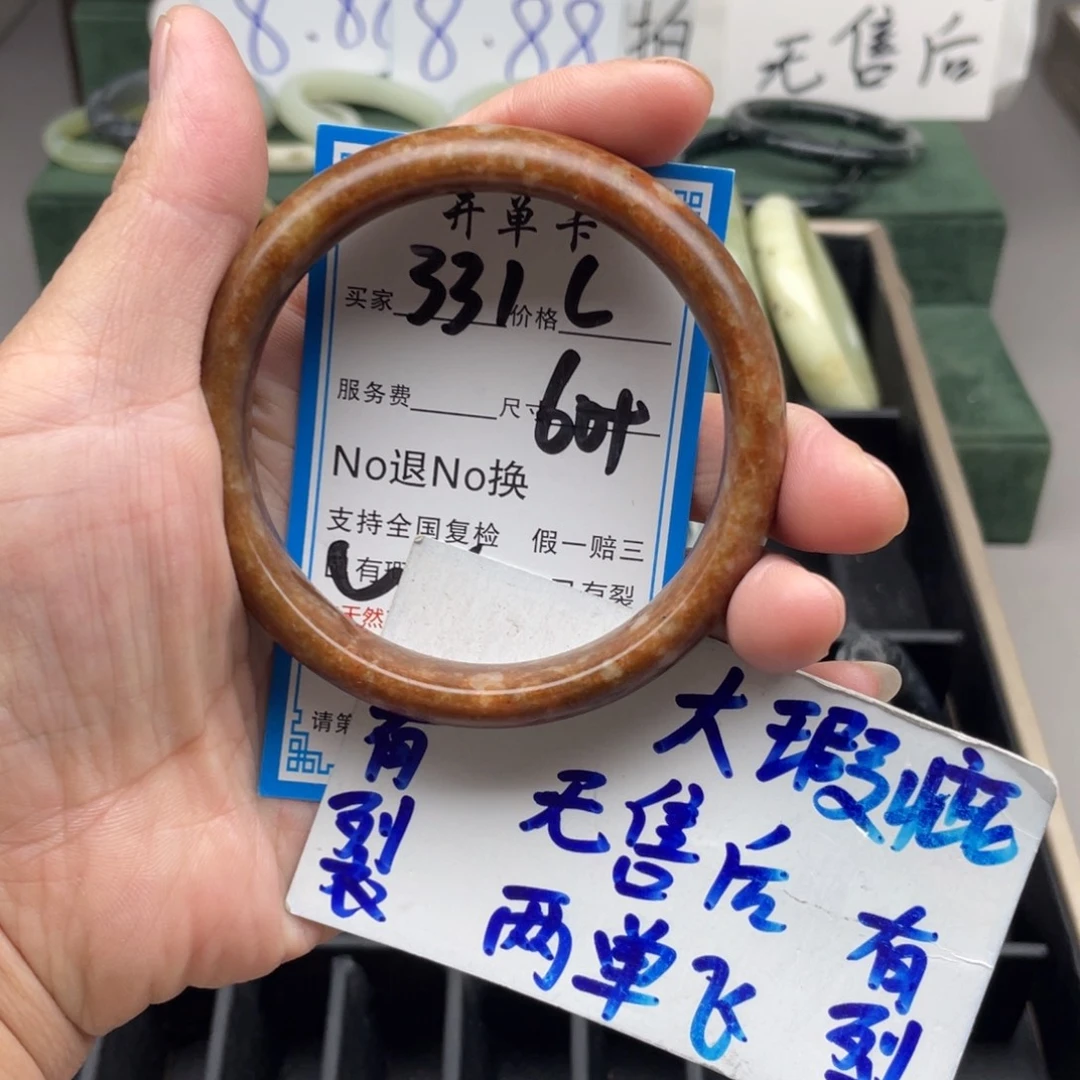 8.88
8.88
拍
无售后
开单卡
买家 331 价格 L
服务费 尺寸 60叶
No退No换
支持全国复检 假一赔三
有瑕
已有裂
天然
请第
有裂
大瑕疵
无售后
两单飞
有裂